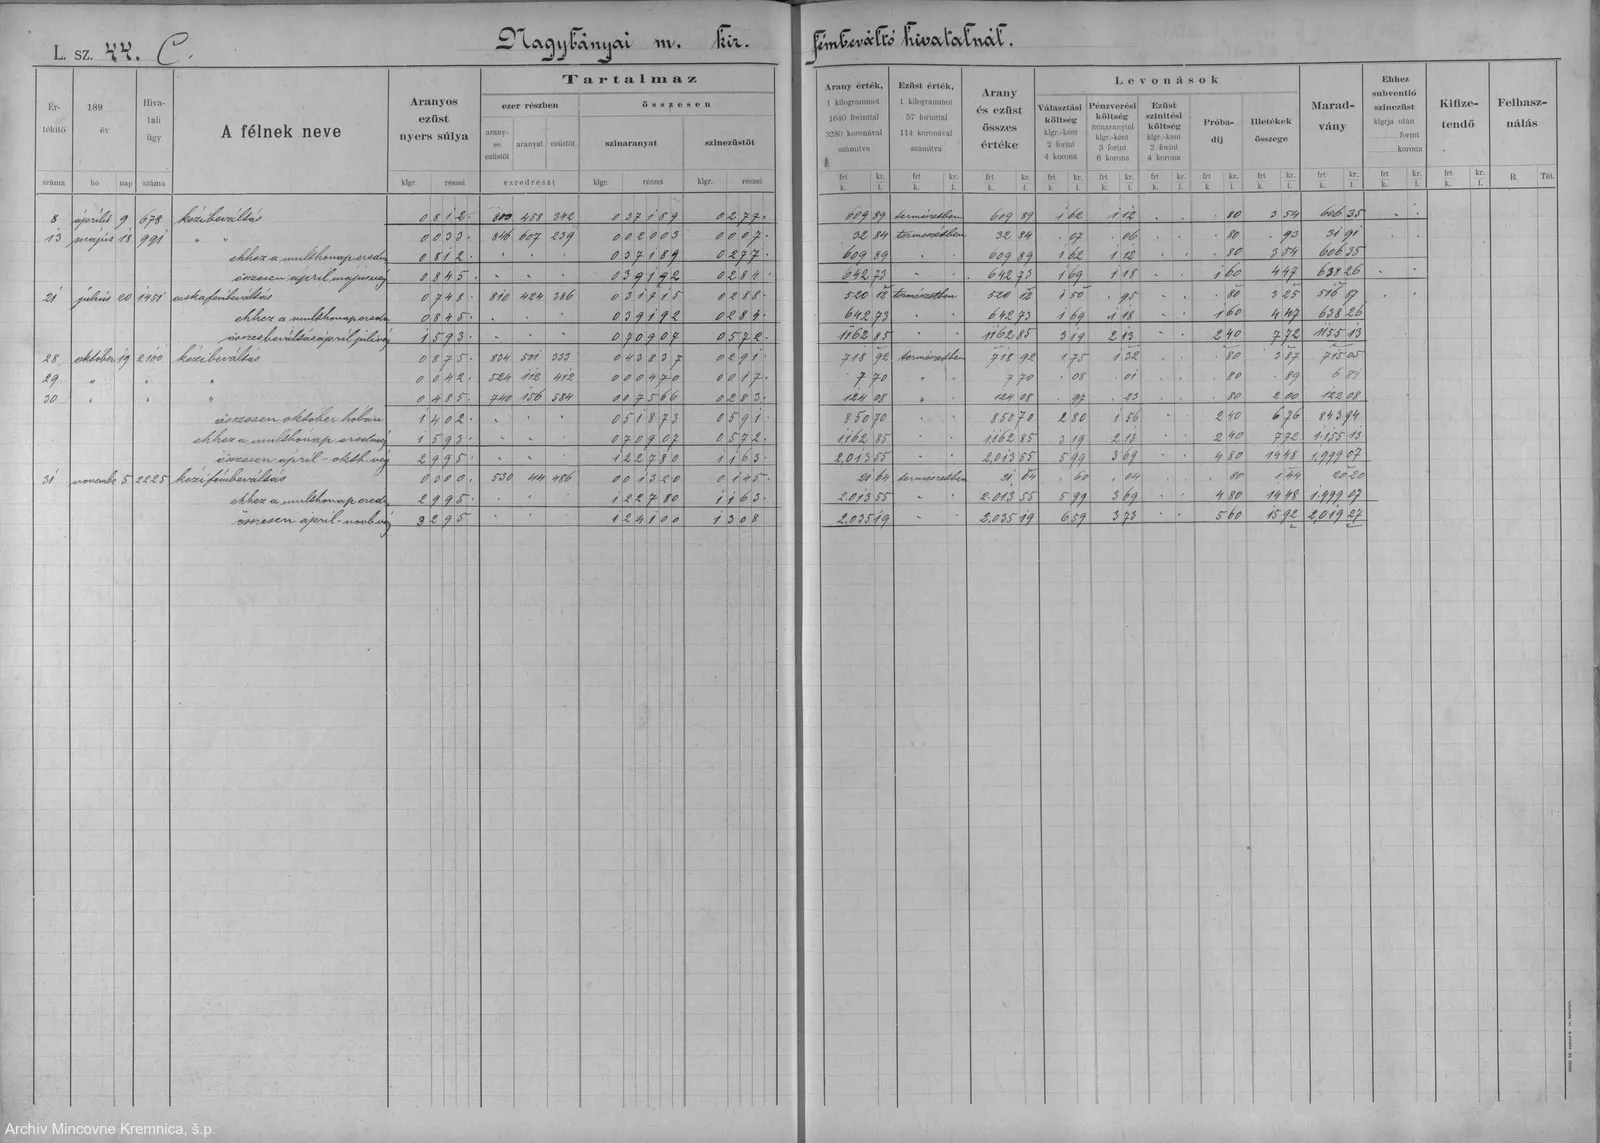 L. sz. 44. C.
Nagybányai m. kir. fémbeváltó hivatalnál.
Értékítő száma
189 év
hó nap
Hivatali ügy száma
A félnek neve
Aranyos ezüst nyers súlya
klgr. részei
Tartalmaz
ezer részben
arany- és ezüstöt aranyat ezüstöt
ezredrészt
összesen
szinaranyat
klgr. részei
szinezüstöt
klgr. részei
Arany érték, 1 kilogrammot 1640 forinttal 3280 koronával számítva
frt kr.
k. f.
Ezüst érték, 1 kilogrammot 57 forinttal 114 koronával számítva
frt kr.
k. f.
Arany és ezüst összes értéke
frt kr.
k. f.
Levonások
Választási költség klgr.-ként 2 forint 4 korona
frt kr.
k. f.
Pénzverési költség szinaranytól klgr.-ként 3 forint 6 korona
frt kr.
k. f.
Ezüst szinítési költség klgr.-ként 2 forint 4 korona
frt kr.
k. f.
Próbadij
frt kr.
k. f.
Illetékek összege
frt kr.
k. f.
Maradvány
frt kr.
k. f.
Ehhez subventió szinezüst klgrja után forint korona
frt kr.
k. f.
Kifizetendő
frt kr.
k. f.
Felhasználás
B. Tét.
8 április 9 678 kézibeváltás 0 812 800 458 342 0 37189 0 277 609 89 természetben 609 89 1 62 1 12 80 3 54 606 35
13 május 18 991 " " 0 033 846 607 239 0 02003 0 007 32 84 természetben 32 84 07 06 80 93 31 91
ehhez a multhónap eredm 0 812 0 37189 0 277 609 89 609 89 1 62 1 12 80 3 54 606 35
összesen april május vég 0 845 0 39192 0 284 642 73 642 73 1 69 1 18 1 60 4 47 638 26
21 julius 20 1451 0 748 810 424 386 0 31715 0 288 520 12 természetben 520 12 1 50 95 80 3 25 516 87
ehhez a multhónap eredm 0 845 0 39192 0 284 642 73 642 73 1 69 1 18 1 60 4 47 638 26
összesbeváltás ápril júl vég 1 593 0 70907 0 572 1162 85 1162 85 3 19 2 13 2 40 7 72 1155 13
28 október 19 2100 kézibeváltás 0 875 834 501 333 0 43837 0 291 718 92 természetben 718 92 1 75 1 32 80 3 87 715 05
29 " " " 0 042 524 112 412 0 00470 0 017 7 70 " 7 70 08 01 80 89 6 81
30 " " " 0 485 740 156 584 0 07566 0 283 124 08 " 124 08 97 23 80 2 00 122 08
összesen október hóban 1 402 0 51873 0 591 850 70 850 70 2 80 1 56 2 40 6 76 843 94
ehhez a multhónap eredmé 1 593 0 70907 0 572 1162 85 1162 85 3 19 2 13 2 40 7 72 1.155 13
összesen april-okth. vég 2 995 1 22780 1 163 2.013 55 2.013 55 5 99 3 69 4 80 14 48 1.999 07
31 novembe 5 2225 kézifémbeváltás 0 300 530 44 486 0 01320 0 145 21 64 természetben 21 64 60 04 80 1 44 20 20
ehhez a multhónap eredm 2 995 1 22780 1 163 2.013 55 2.013 55 5 99 3 69 4 80 14 48 1.999 07
összesen april-novb vég 3 295 1 24100 1 308 2.035 19 2.035 19 6 59 3 73 5 60 15 92 2.019 27
Archiv Mincovne Kremnica, š.p.